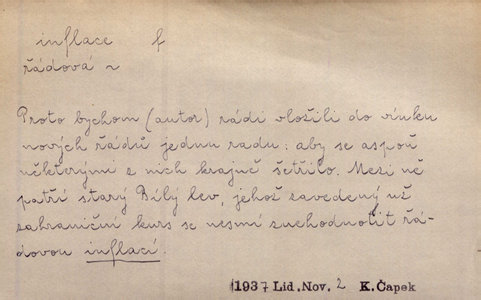 inflace f
řádová ~
Proto bychom (autor) rádi vložili do vínku
nových řádů jednu radu: aby se aspoň
některými z nich krajně šetřilo. Mezi ně
patří starý Bílý lev, jehož zavedený už
zahraniční kurs se nesmí znehodnotit řá-
dovou inflací.
1937 Lid. Nov. 2 K. Čapek